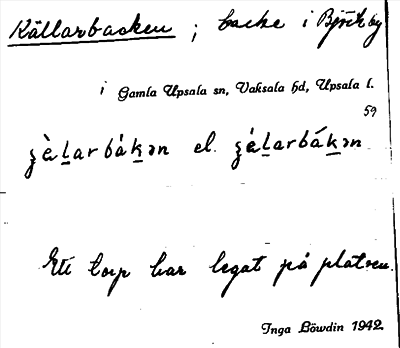 Källarbacken ; backe i Björkby
i Gamla Upsala sn, Vaksala hd, Upsala l.
59
el.
Ett torp har legat på platsen.
Inga Löwdin 1942.